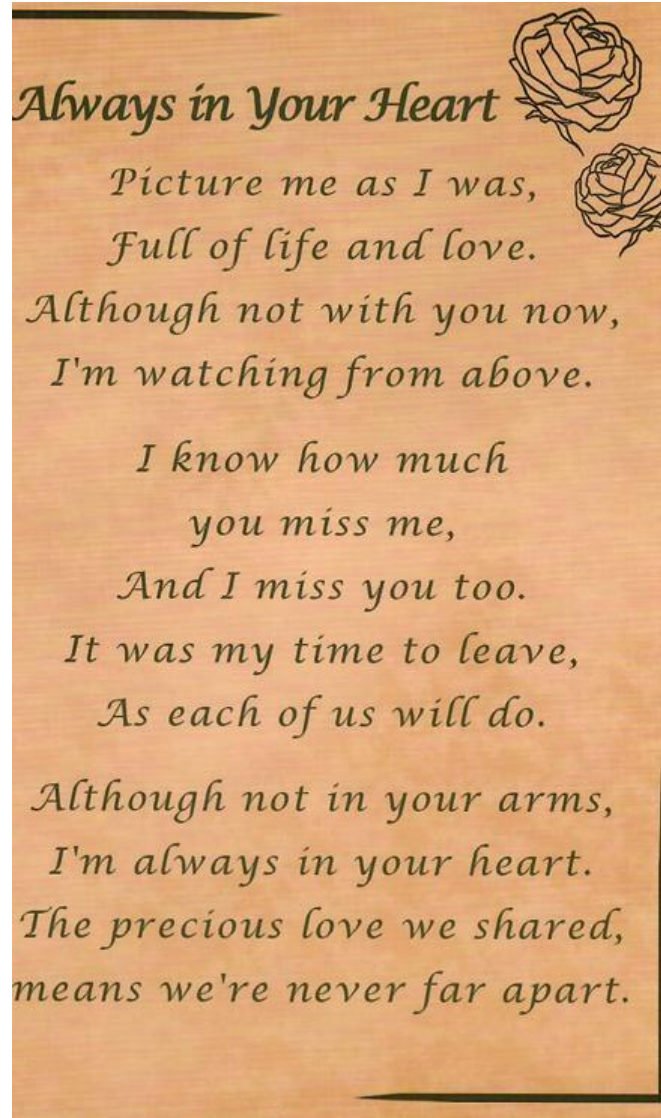 Always in Your Heart
Picture me as I was,
Full of life and love.
Although not with you now,
I'm watching from above.
I know how much
you miss me,
And I miss you too.
It was my time to leave,
As each of us will do.
Although not in your arms,
I'm always in your heart.
The precious love we shared,
means we're never far apart.